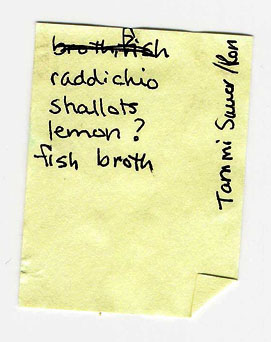 broth, fish
raddichio
shallots
lemon ?
fish broth
Tammi Sauer/Ron